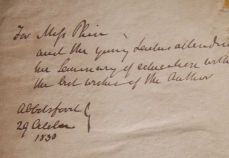 For Miss
and the young Ladies attending
her Seminary of education with
the best wishes of the Author
Abbotsford
29 October
1830